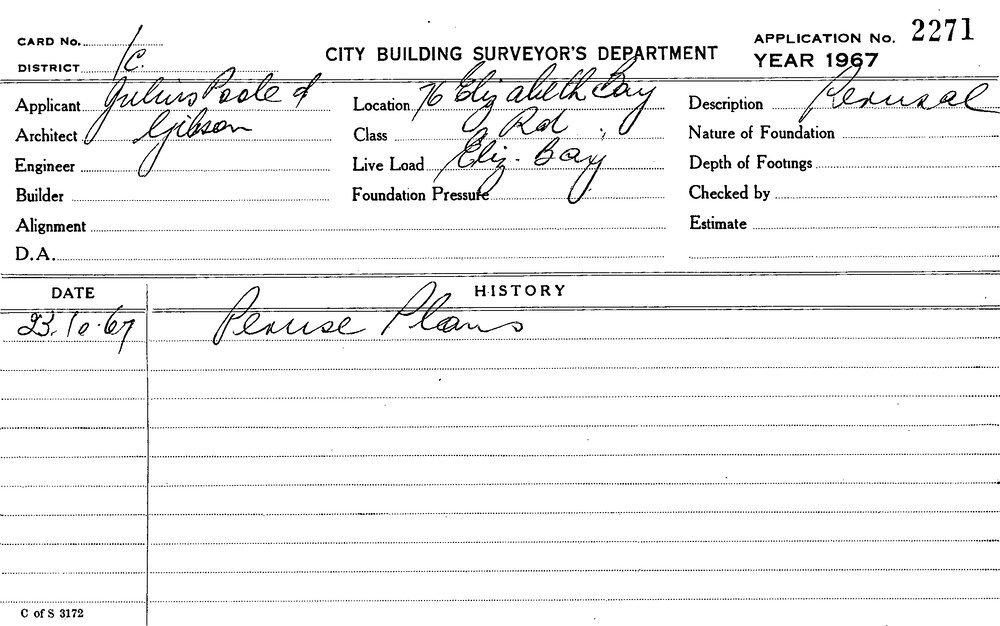 CARD No.
APPLICATION No. 2271
DISTRICT 1C.
CITY BUILDING SURVEYOR'S DEPARTMENT
YEAR 1967
Applicant Julius Poole &
Location 76 Elizabeth Bay
Description Perusal
Architect Gibson
Class Rd,
Nature of Foundation
Engineer
Live Load Eliz. Bay
Depth of Footings
Builder
Foundation Pressure
Checked by
Alignment
Estimate
D.A.
DATE HISTORY
23.10.67 Peruse Plans
C of S 3172